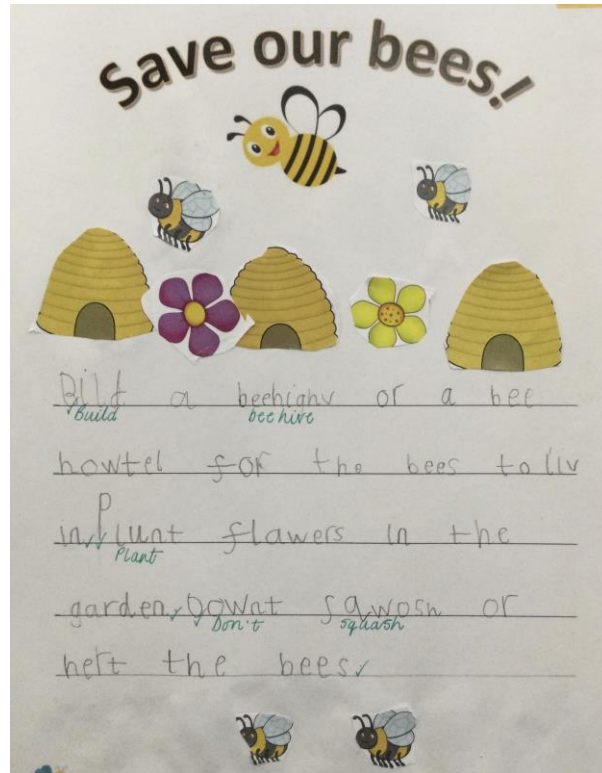 Save our bees!
Bild a beehighv or a bee
Build beehive
howtel for the bees to liv
in. Plunt flawers in the
Plant
garden. Downt sqwosh or
Don't squash
hert the bees.